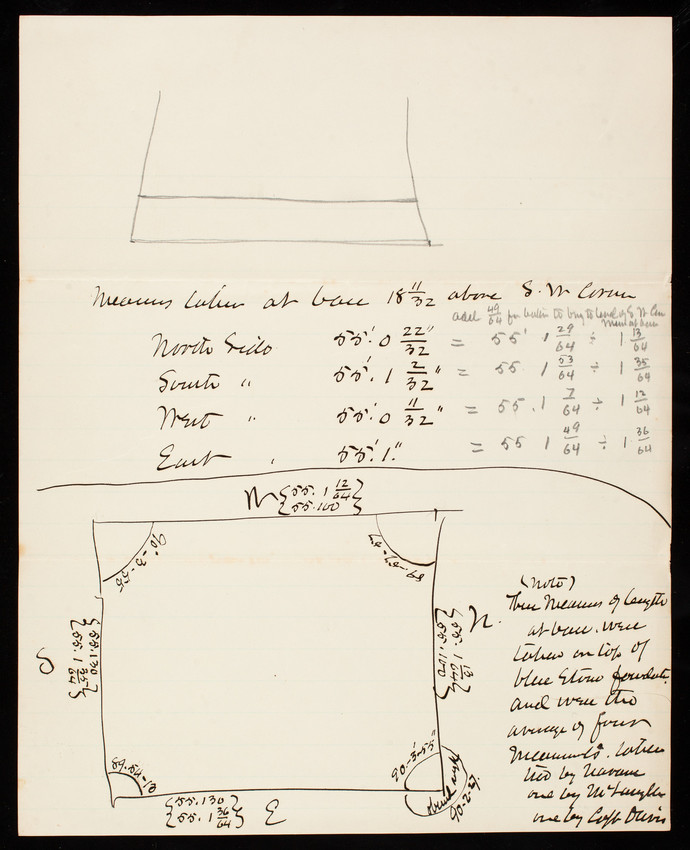 Measures taken at base 18 11/32 above S. W. Corner
add 49/64 for batter to bring to level of S W Cor
North Side 55'. 0 22/32" = 55' 1 29/64 ÷ 1 13/64
South " 55'. 1 2/32" = 55 1 53/64 ÷ 1 35/64
West " 55'. 0 11/32" = 55. 1 7/64 ÷ 1 12/64
East " 55'. 1." = 55 1 49/64 ÷ 1 36/64
W { 55. 1 12/64
55.100 }
90-3-55
89-57-57
S
{ 55.130
55. 1 35/64 }
{ 55. 1 13/64
55.100 }
N.
89-54-12
90-3'-55"
90-2-27
{ 55.130
55. 1 36/64 } E
(Note)
These Measures of length
at base were
taken on top of
blue Stone foundat.
and were the
average of four
Measurmts. taken
two by
one by McLaughlin
one by Capt Davis